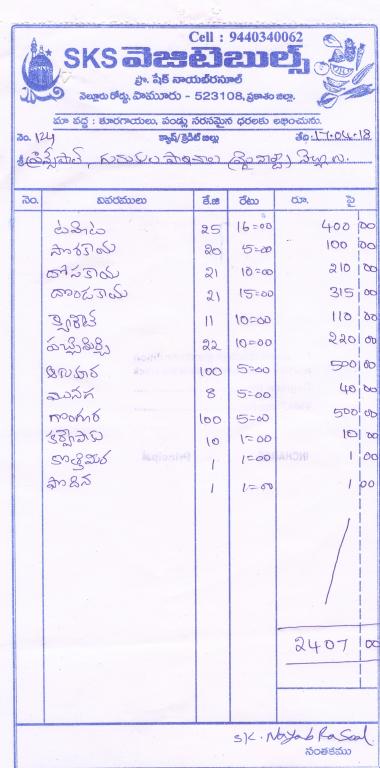 Cell : 9440340062
SKS వెజిటెబుల్స్
ప్రొ. షేక్ నాయబ్‌రసూల్
నెల్లూరు రోడ్డు, పామూరు - 523108, ప్రకాశం జిల్లా.
మా వద్ద : కూరగాయలు, పండ్లు సరసమైన ధరలకు లభించును.
నెం. 124 క్యాష్/క్రెడిట్ బిల్లు తేది 17-04-18
శ్రీ ప్రిన్సిపాల్, గురుకుల పాఠశాల
నెం. వివరములు కే.జి రేటు రూ. పై
టమోట 25 16=00 400 00
సొరకాయ 20 5=00 100 00
దోసకాయ 21 10=00 210 00
దొండకాయ 21 15=00 315 00
11 10=00 110 00
పచ్చిమిర్చి 22 10=00 220 00
100 5=00 500 00
మునగ 8 5=00 40 00
గొంగుర 100 5=00 500 00
కరివేపాకు 10 1=00 10 00
కొత్తిమీర 1 1=00 1 00
పొదిన 1 1=00 1 00
2407 00
SK. Nayab Rasool
సంతకము